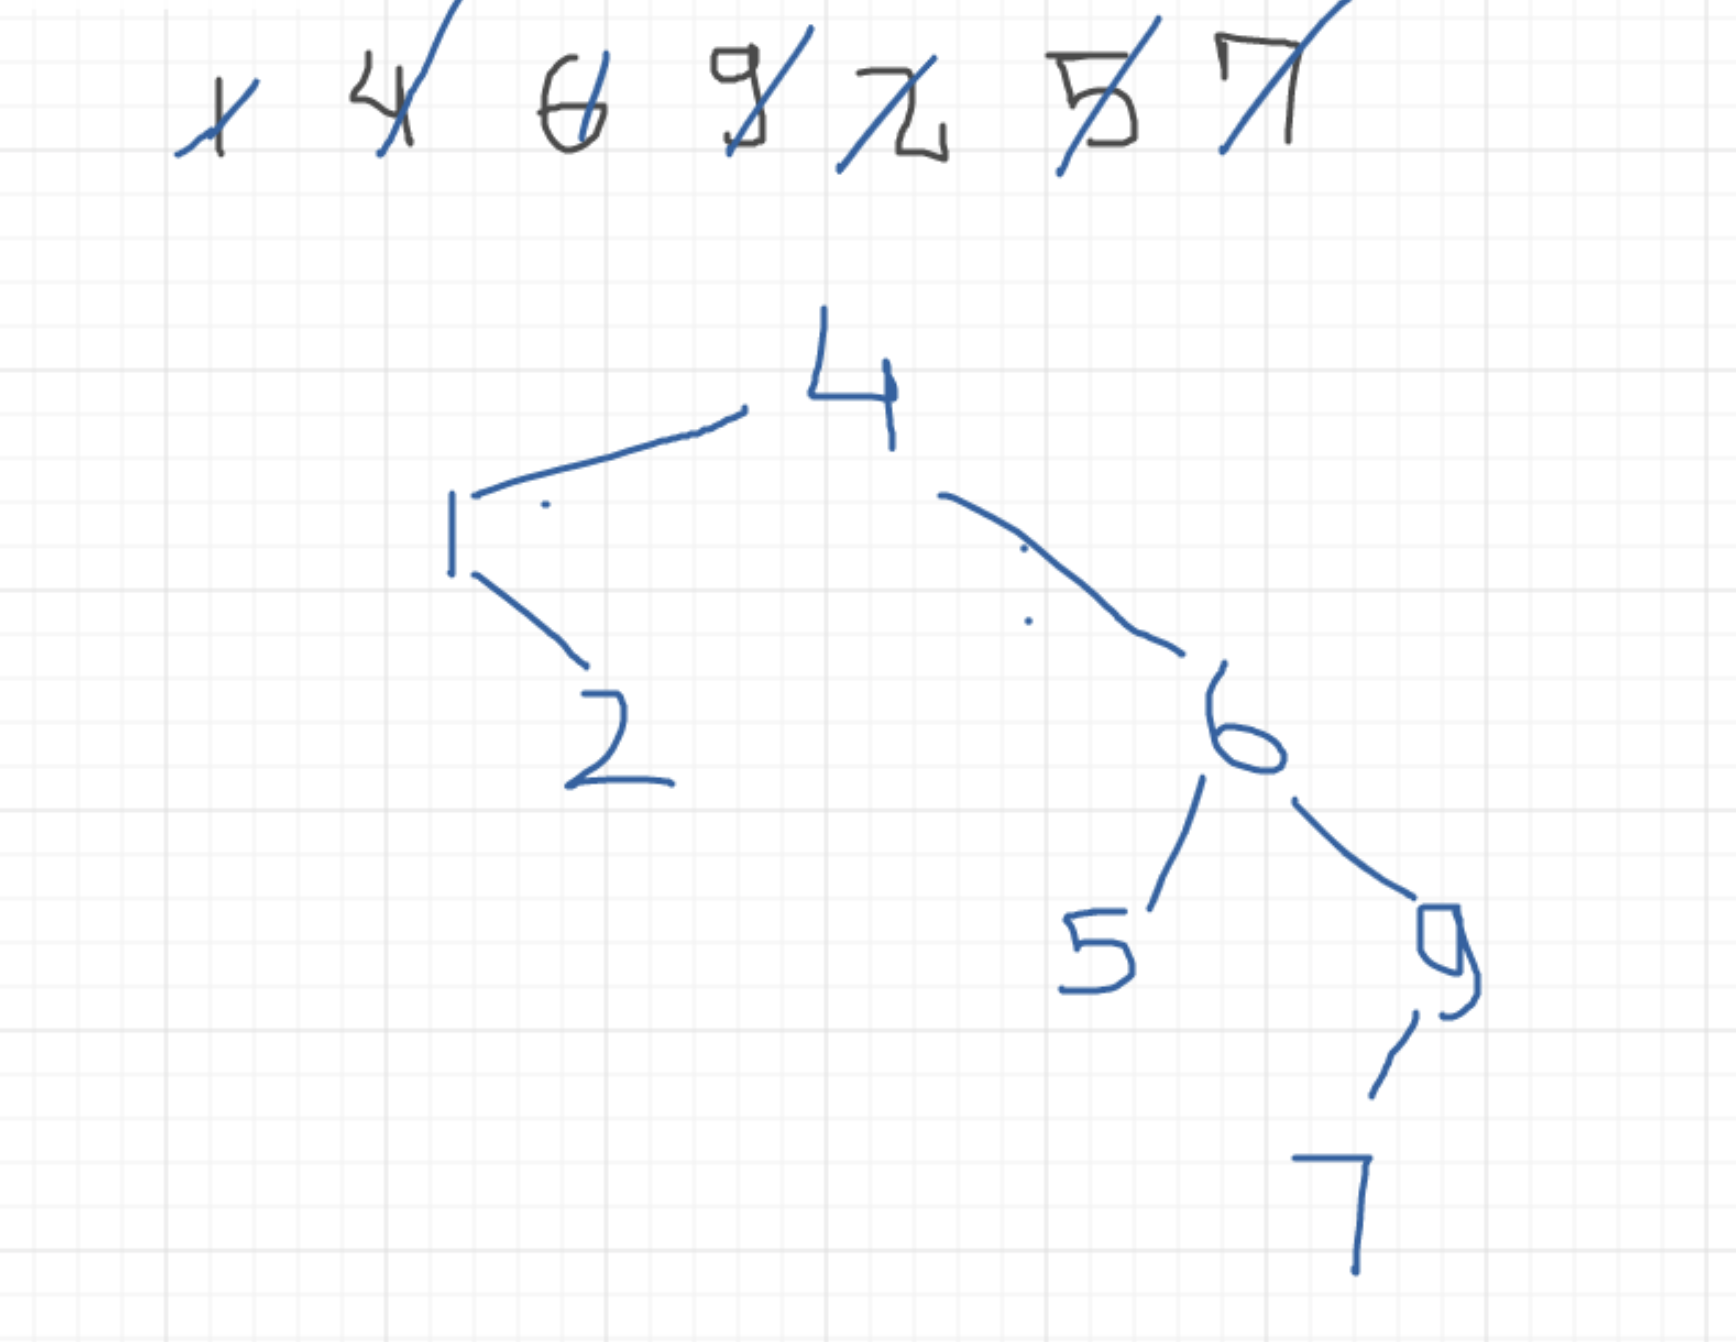 1 4 6 9 2 5 7
4
1
2
6
5 9
7